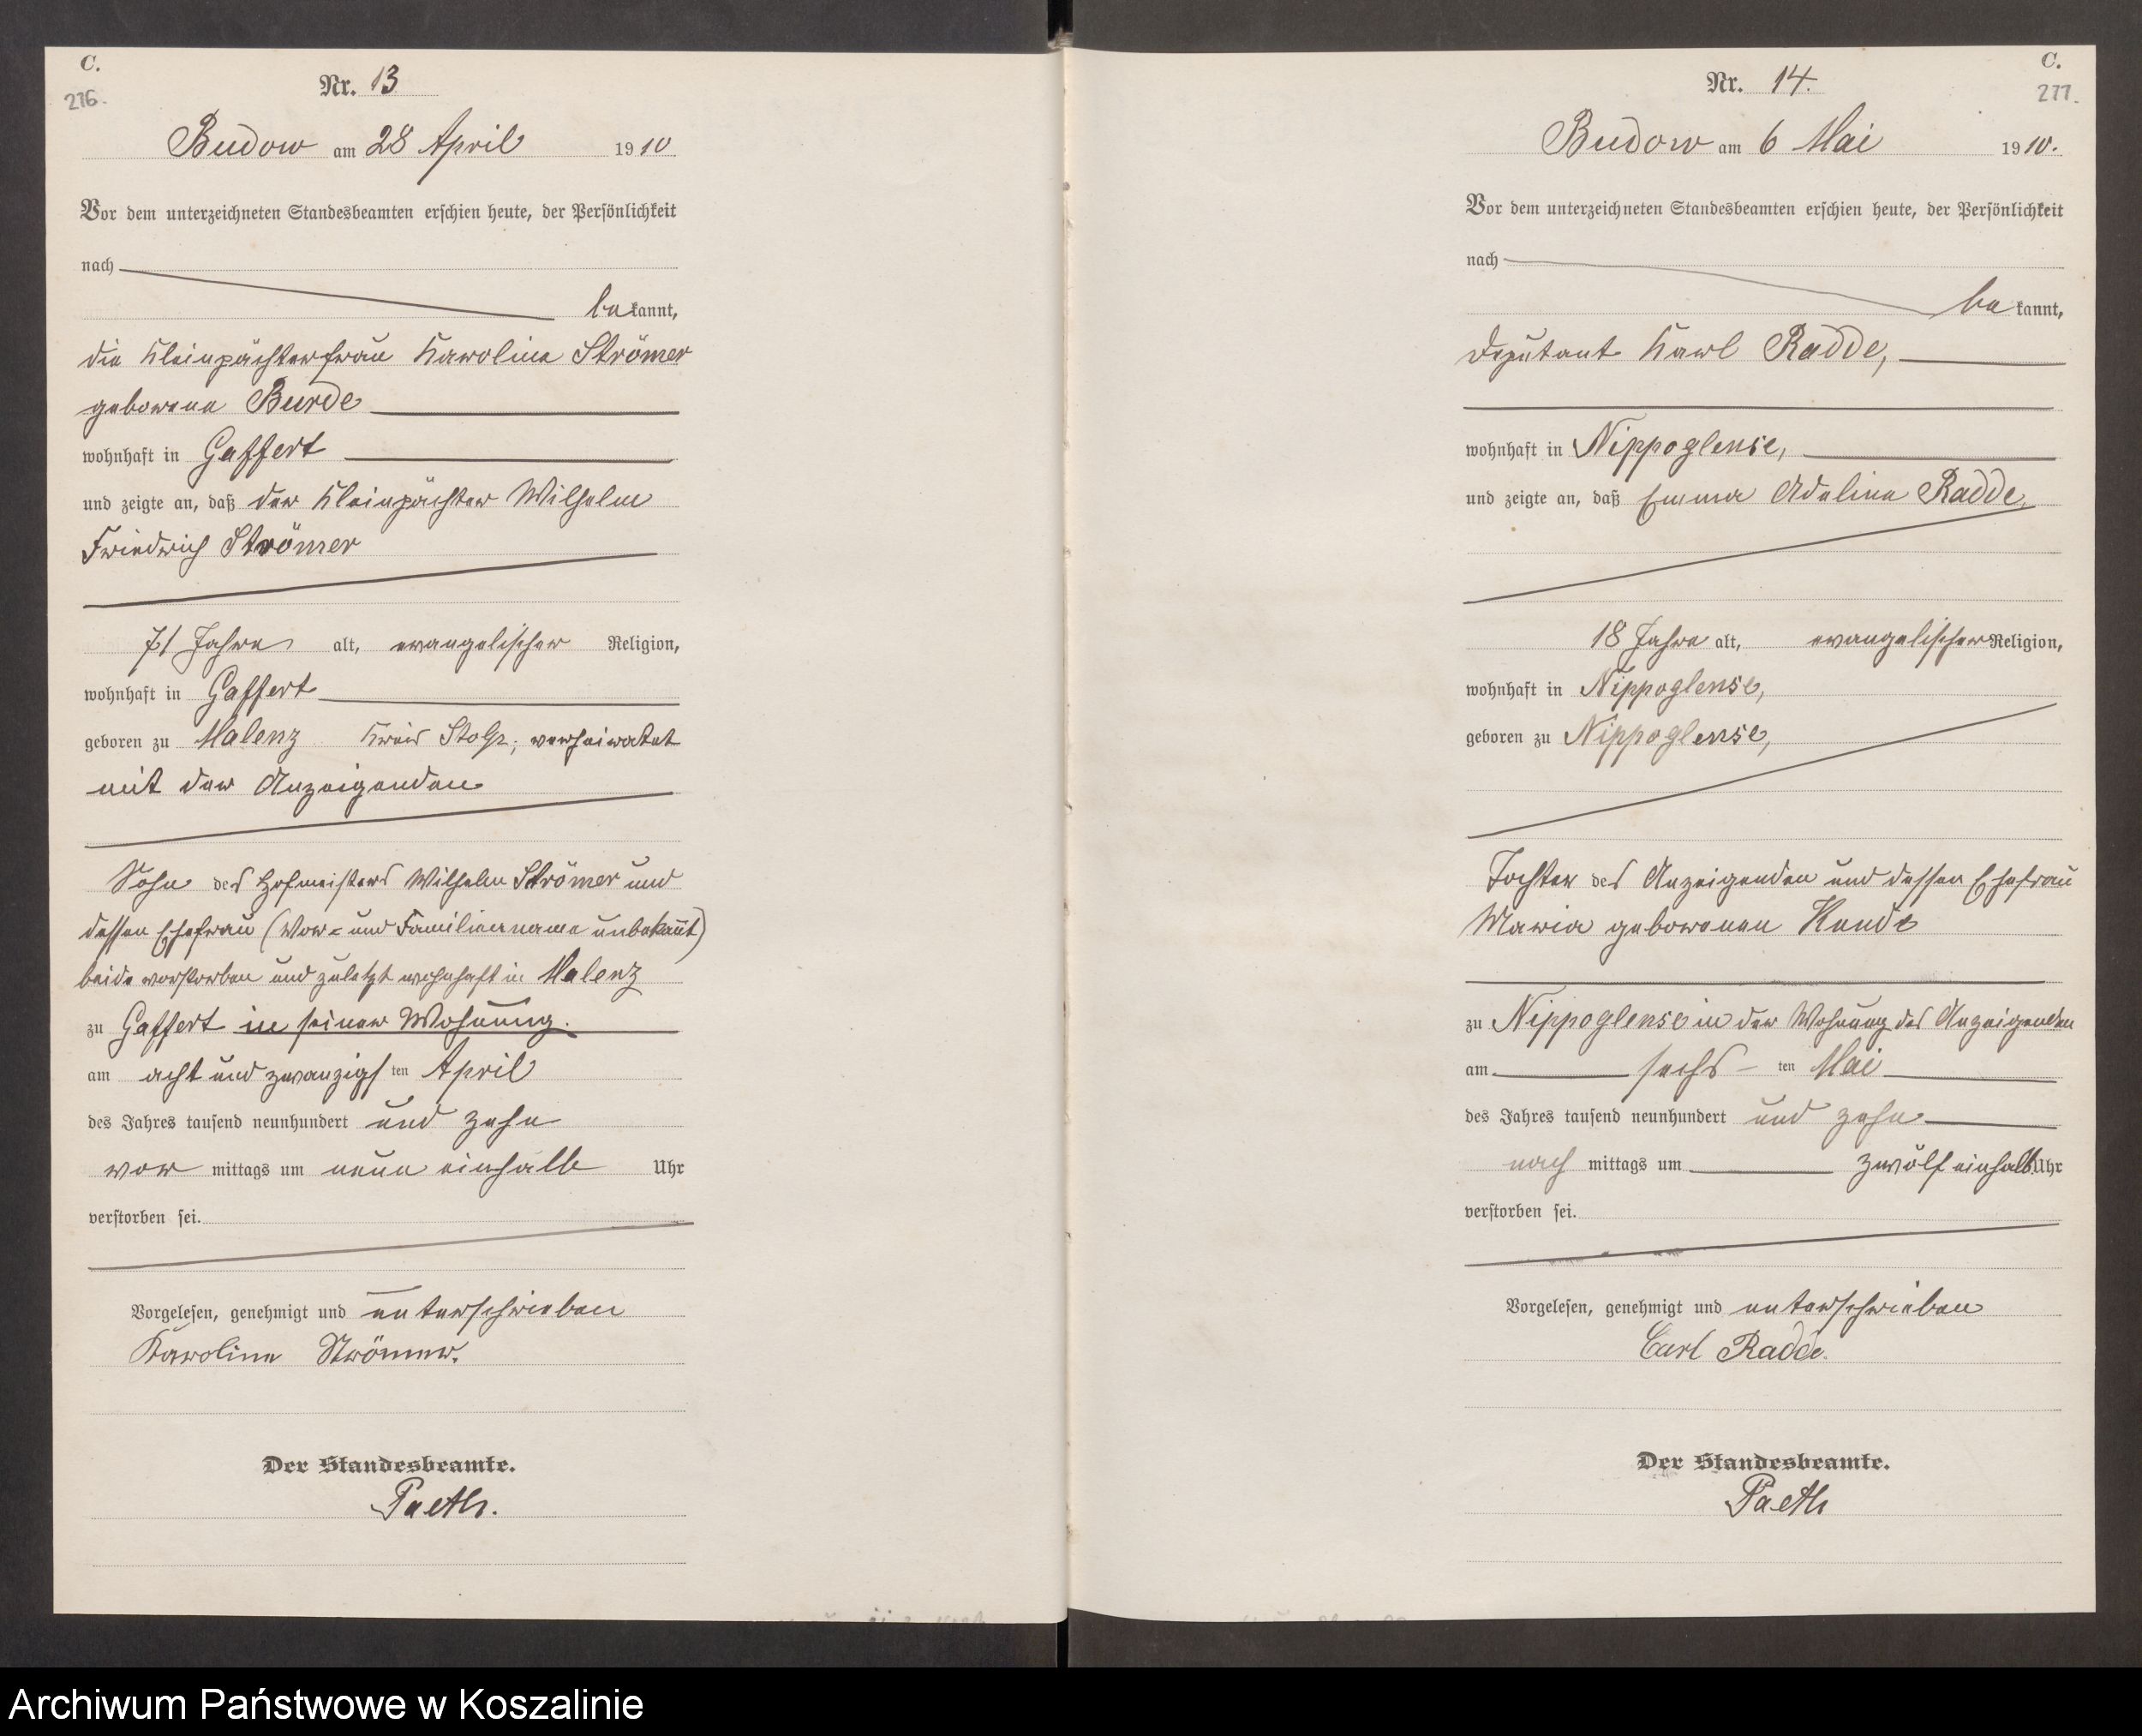 C.
276.
Nr. 13
Budow am 28 April 1910
Vor dem unterzeichneten Standesbeamten erschien heute, der Persönlichkeit
nach
bekannt,
die Kleinpächterfrau Karoline Strömer
geborene Burde
wohnhaft in Gaffert
und zeigte an, daß der Kleinpächter Wilhelm
Friedrich Strömer
71 Jahre alt, evangelischer Religion,
wohnhaft in Gaffert
geboren zu Malenz Kreis Stolp, verheiratet
mit der Anzeigenden
Sohn des Hofmeisters Wilhelm Strömer und
dessen Ehefrau (Vor- und Familienname unbekannt)
beide verstorben und zuletzt wohnhaft in Malenz
zu Gaffert in seiner Wohnung.
am acht und zwanzigsten April
des Jahres tausend neunhundert und zehn
vor mittags um neun einhalb Uhr
verstorben sei.
Vorgelesen, genehmigt und unterschrieben
Karoline Strömer.
Der Standesbeamte.
Paeth.
C.
277.
Nr. 14.
Budow am 6 Mai 1910.
Vor dem unterzeichneten Standesbeamten erschien heute, der Persönlichkeit
nach
bekannt,
Deputant Karl Radde,
wohnhaft in Nippoglense,
und zeigte an, daß Emma Adeline Radde,
18 Jahre alt, evangelischer Religion,
wohnhaft in Nippoglense,
geboren zu Nippoglense,
Tochter des Anzeigenden und dessen Ehefrau
Marie geborenen Kunde
zu Nippoglense in der Wohnung des Anzeigenden
am sechs ten Mai
des Jahres tausend neunhundert und zehn
nach mittags um zwölf einhalb Uhr
verstorben sei.
Vorgelesen, genehmigt und unterschrieben
Carl Radde.
Der Standesbeamte.
Paeth
Archiwum Państwowe w Koszalinie